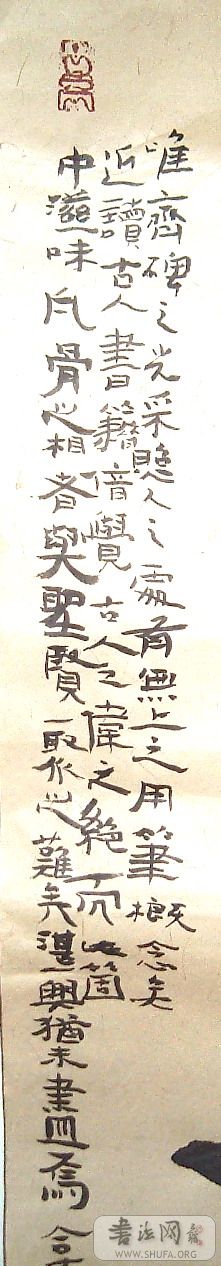 唯齊碑之光采照人之處有無上之用筆概念矣
近讀古人書籍倍覺古人之偉之絕而此箇
中滋味凡骨心相者與聖賢一取依心難矣湛興猶未盡焉
書法网
WWW.SHUFA.ORG